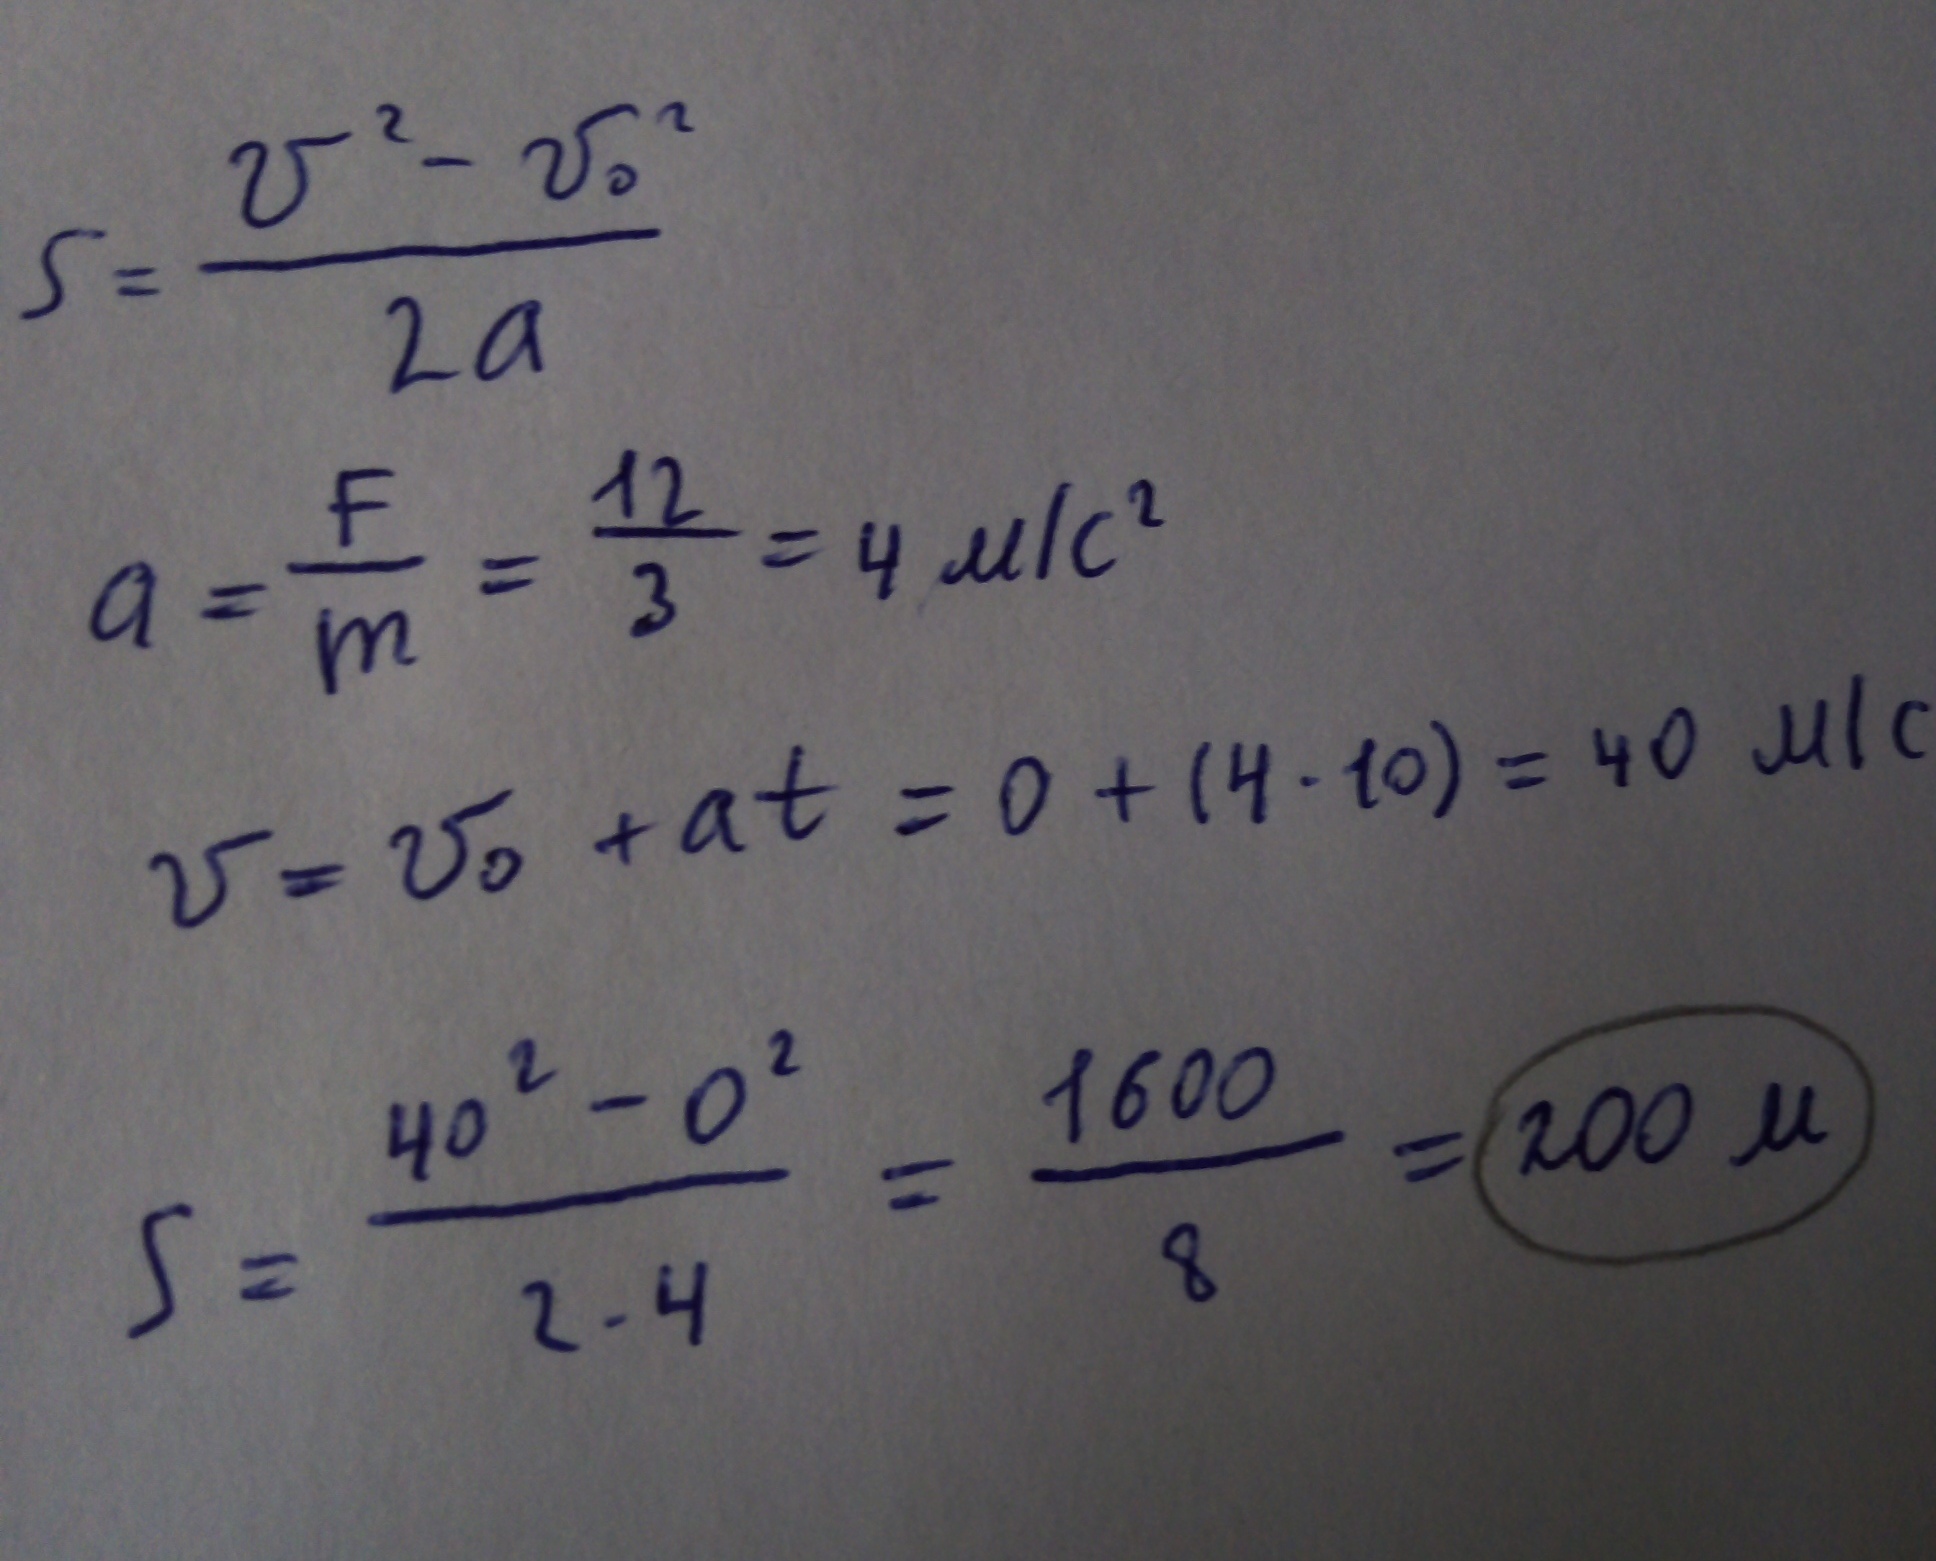 S = (v² - v₀²) / 2a
a = F/m = 12/3 = 4 м/с²
v = v₀ + at = 0 + (4 · 10) = 40 м/с
S = (40² - 0²) / (2 · 4) = 1600/8 = 200 м